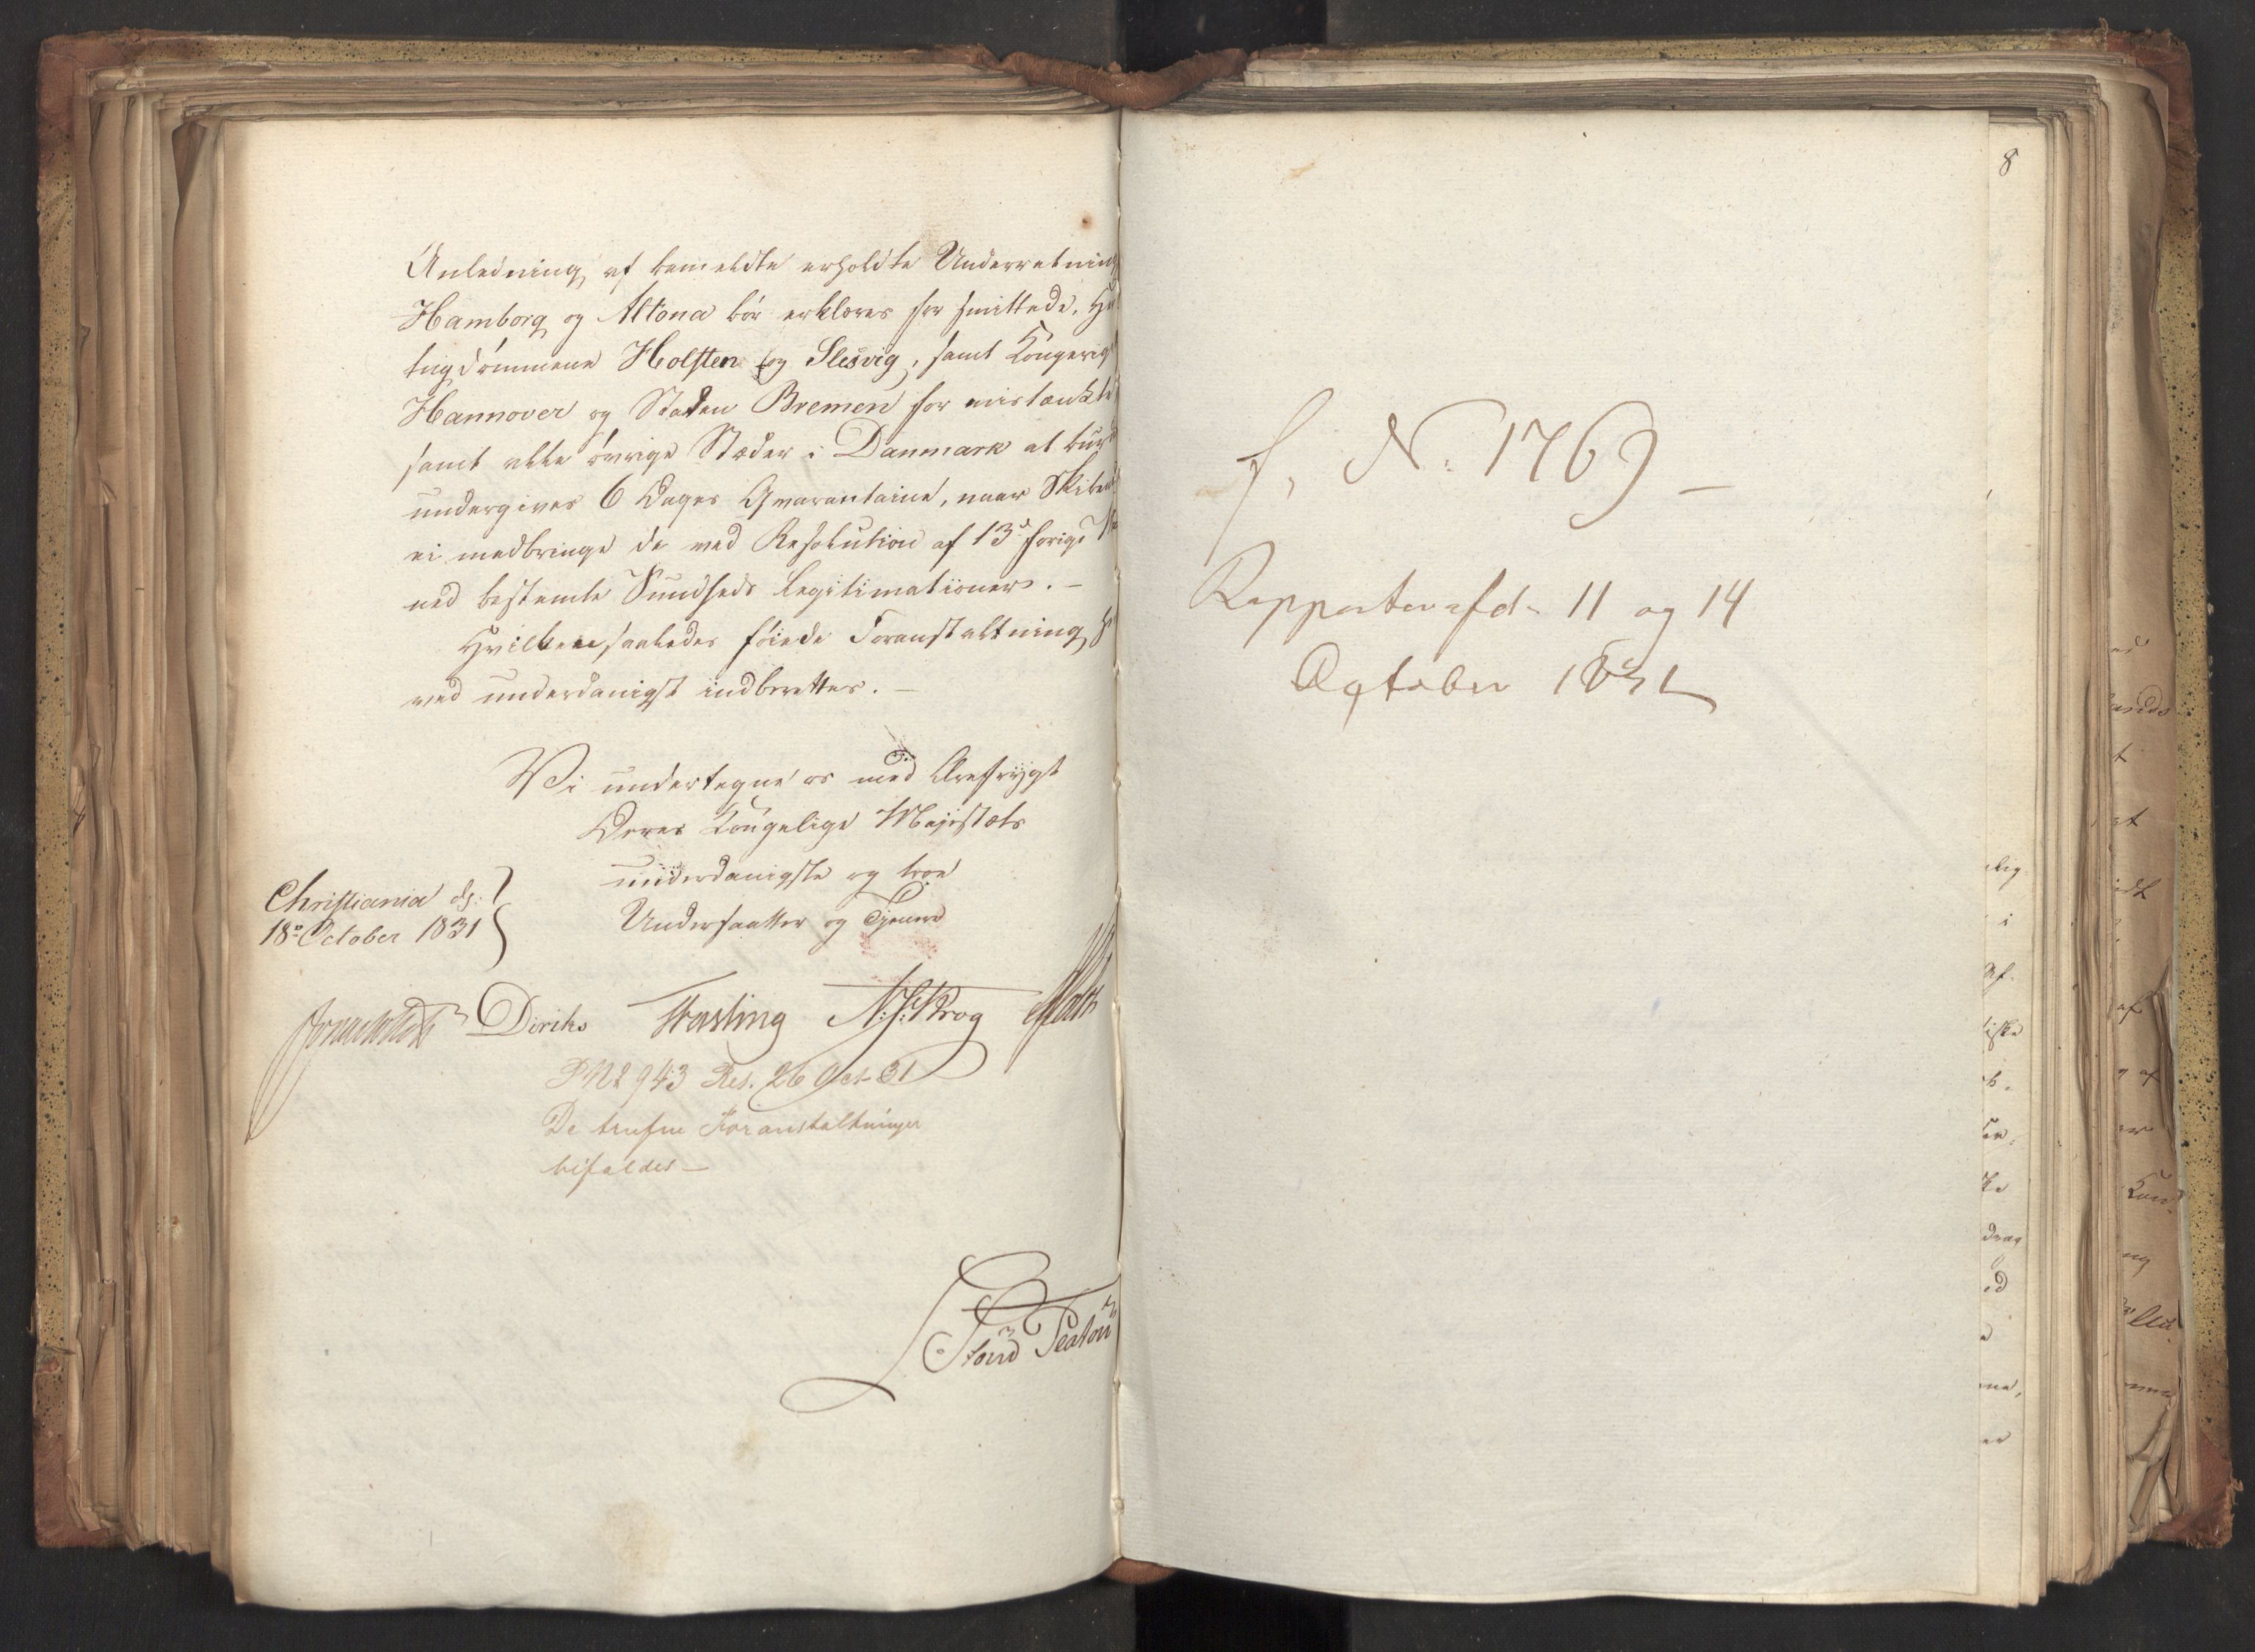 Anledning af bemeldte erholdte Underretning
Hamborg og Altona bör erklæres for smittede, Her
tugdömmene Holsten og Slesvig, samt Kongerig
Hannover og Staden Bremen for mistænkte
samt alle övrige Stæder i Danmark at burde
undergives 6 Dages Qvarantaine, naar Skibene
ei medbringe de ved Resolution af 13de forige Maa
ned bestemte Sundheds Legitimationer. –
Hvilken saaledes föiede Foranstaltning her
ved underdanigst indberettes. –
Vi undertegne os med Ærefrygt
Deres Kongelige Majestæts
underdanigste og troe
Undersaatter og Tjenere
Christiania d:
18de October 1831
Diriks Fasting N:J:Krog
PN 2943 Res. 26 Oct 31
De trufne Foranstaltninger
bifaldes –
8
f. N: 1769 –
Rapporter afd. 11 og 14
October 1831